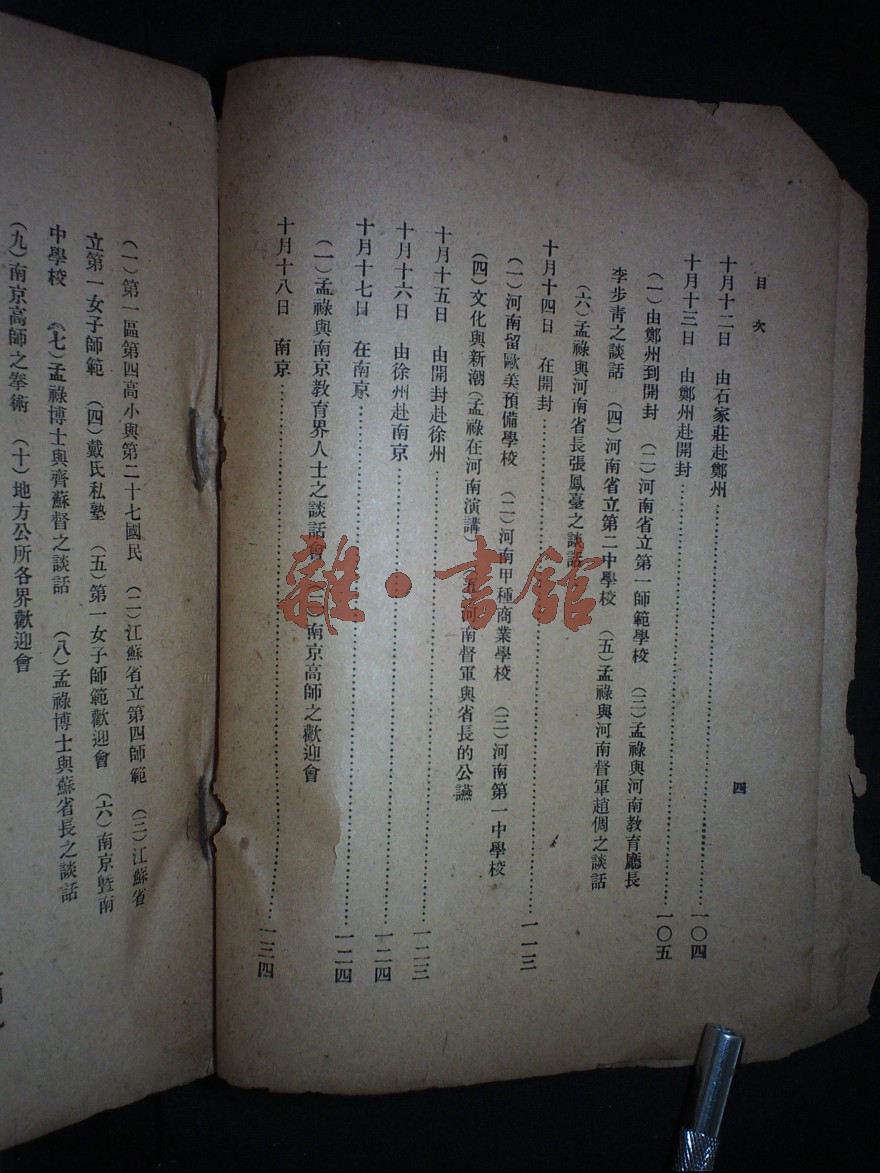 目次
四
十月十二日　由石家莊赴鄭州……一〇四
十月十三日　由鄭州赴開封……一〇五
(一)由鄭州到開封　(二)河南省立第一師範學校　(三)孟祿與河南教育廳長
李步青之談話　(四)河南省立第二中學校　(五)孟祿與河南督軍趙倜之談話
(六)孟祿與河南省長張鳳臺之談話
十月十四日　在開封……一一三
(一)河南留歐美預備學校　(二)河南甲種商業學校　(三)河南第一中學校
(四)文化與新潮(孟祿在河南演講)　(五)河南督軍與省長的公讌
十月十五日　由開封赴徐州……一二三
十月十六日　由徐州赴南京……一二四
十月十七日　在南京……一二四
(一)孟祿與南京教育界人士之談話會　(二)南京高師之歡迎會
十月十八日　南京……一三四
(一)第一區第四高小與第二十七國民　(二)江蘇省立第四師範　(三)江蘇省
立第一女子師範　(四)戴氏私塾　(五)第一女子師範歡迎會　(六)南京暨南
中學校　(七)孟祿博士與齊蘇督之談話　(八)孟祿博士與蘇省長之談話
(九)南京高師之拳術　(十)地方公所各界歡迎會
雜·書館